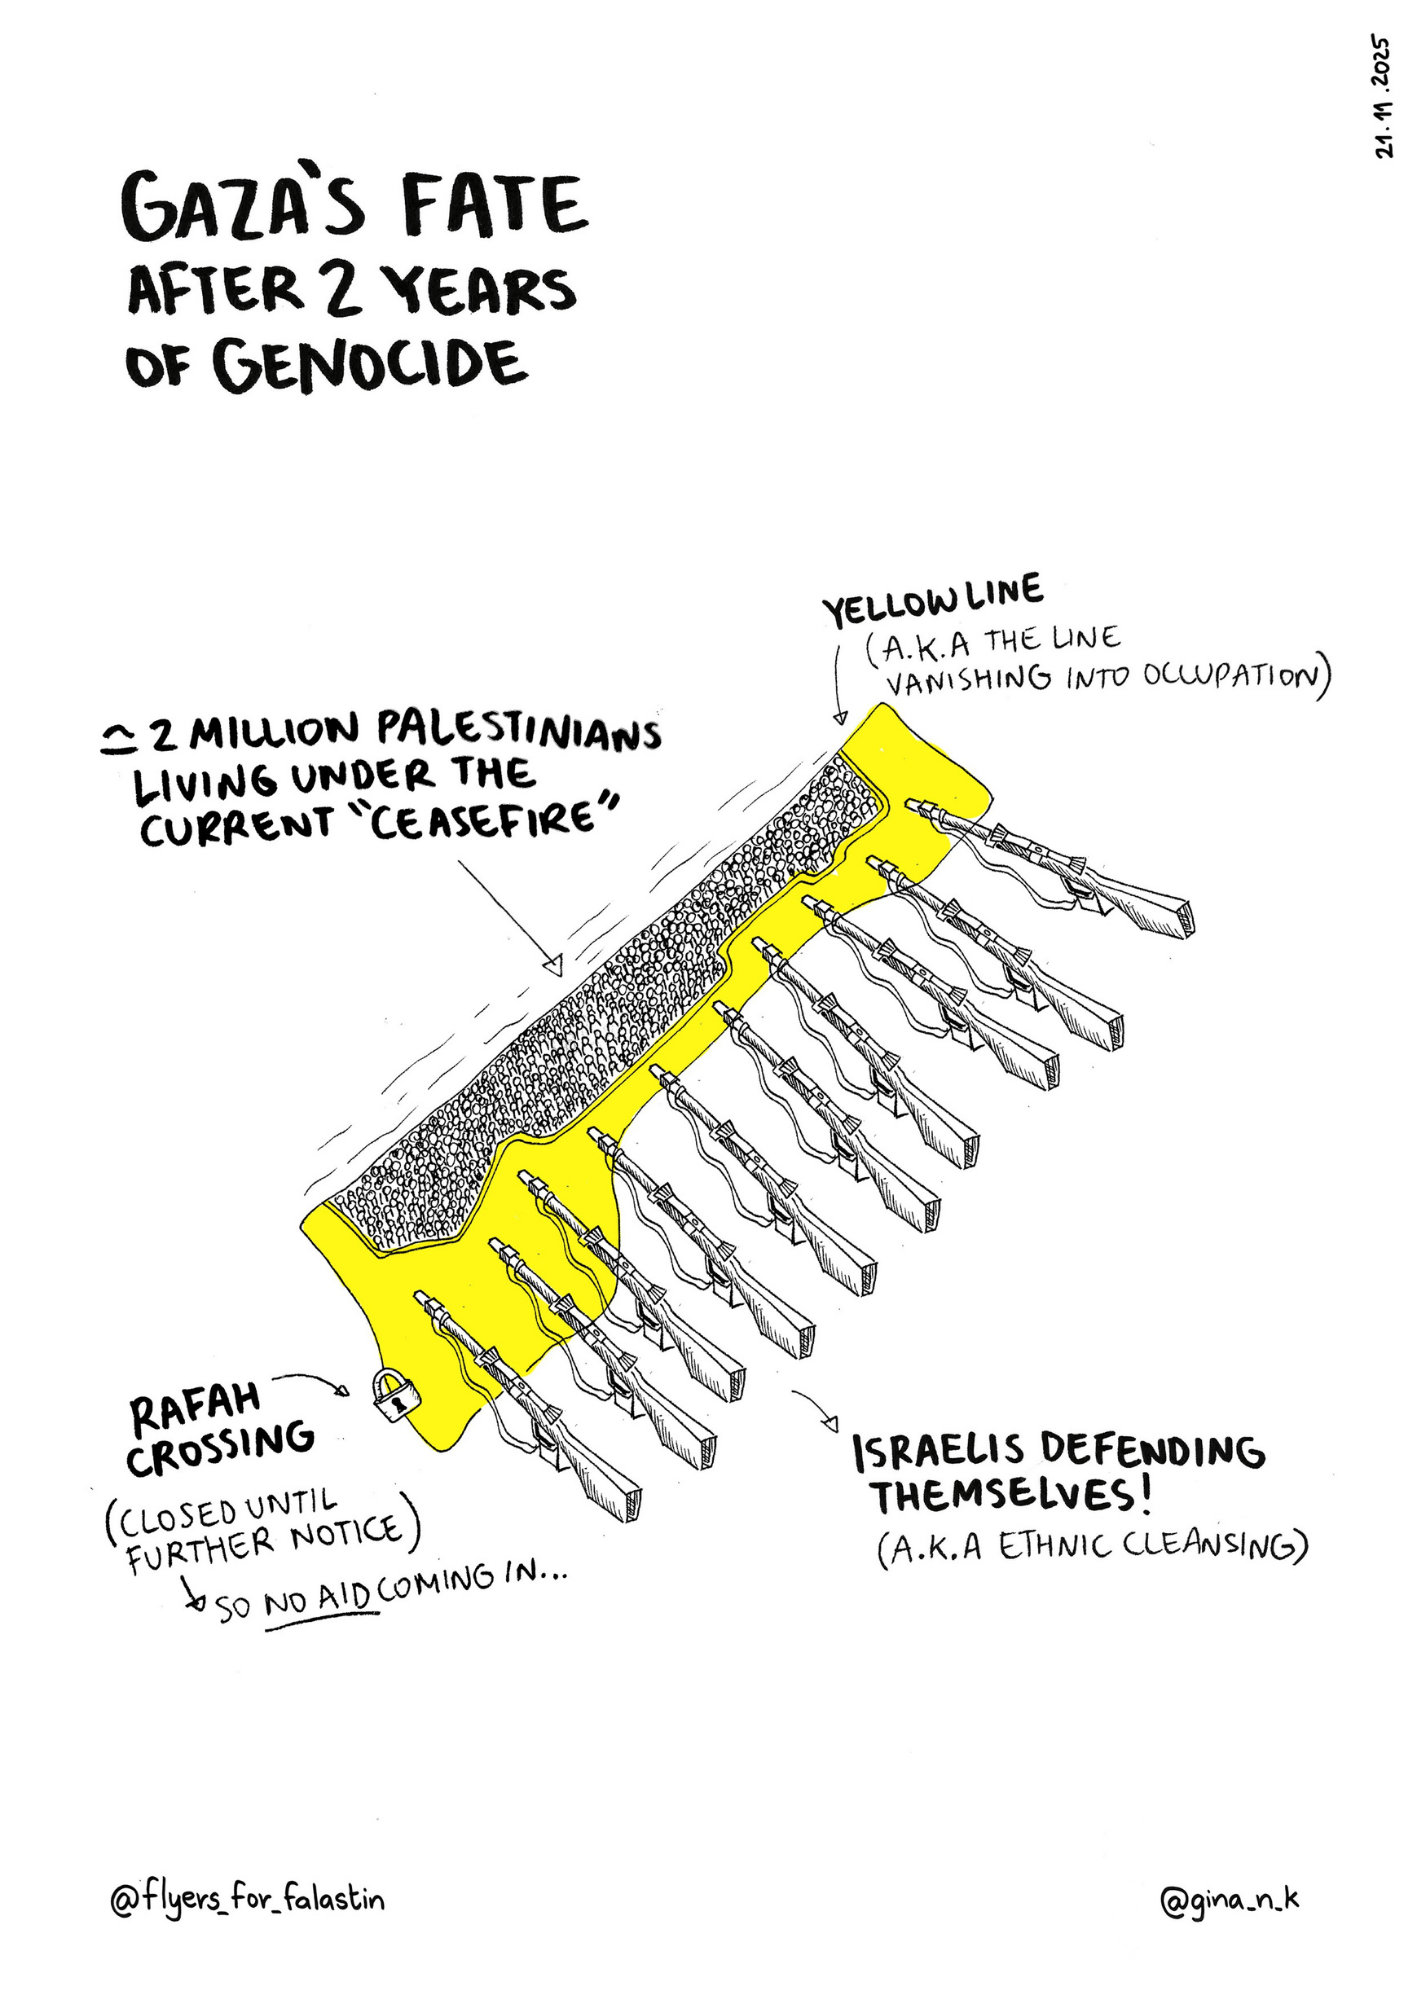 21.11.2025
GAZA'S FATE
AFTER 2 YEARS
OF GENOCIDE
YELLOW LINE
(A.K.A THE LINE
VANISHING INTO OCCUPATION)
≃ 2 MILLION PALESTINIANS
LIVING UNDER THE
CURRENT "CEASEFIRE"
RAFAH
CROSSING
(CLOSED UNTIL
FURTHER NOTICE)
SO NO AID COMING IN...
ISRAELIS DEFENDING
THEMSELVES!
(A.K.A ETHNIC CLEANSING)
@flyers_for_falastin
@gina_n_k